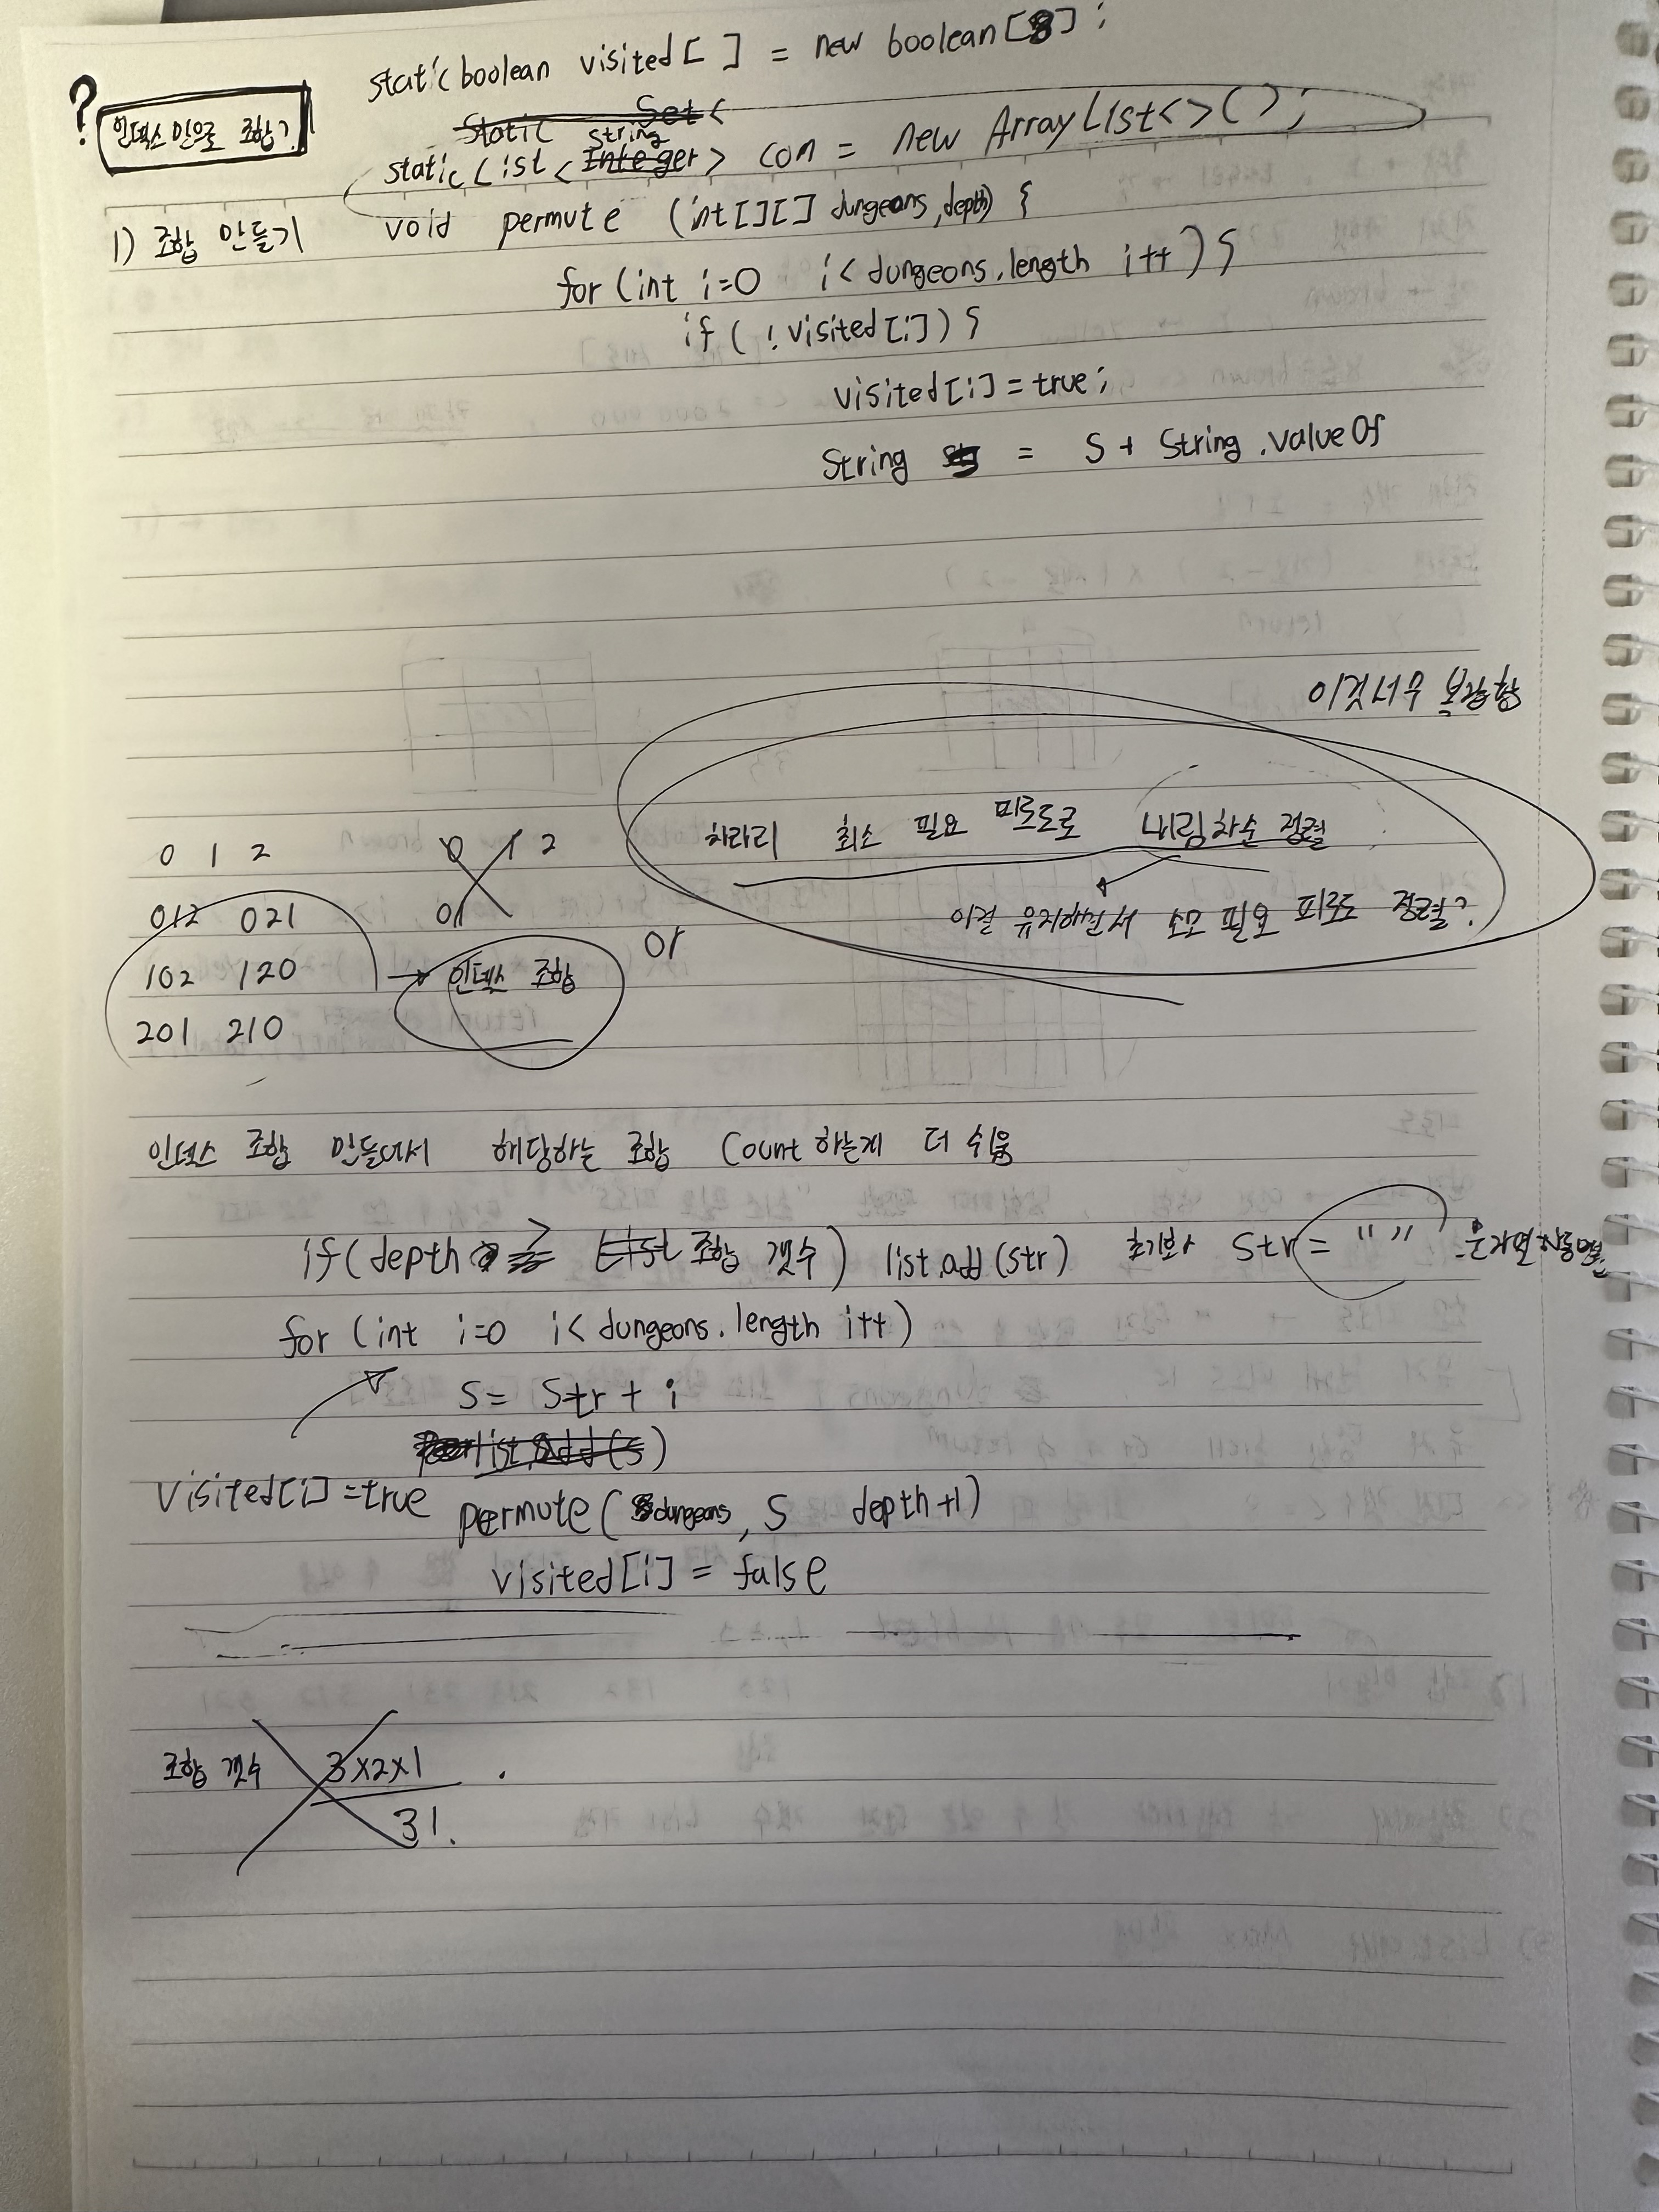 static boolean visited[ ] = new boolean[8];
?
인덱스 만으로 조합?
Static Set<
String
static List<Integer> con = new ArrayList<>();
1) 조합 만들기 void permute (int[][] dungeons, depth) {
for (int i=0 i< dungeons.length i++) {
if ( ! visited[i]) {
visited[i] = true;
String = S + String.valueOf
이것 너무 복잡함
차라리 최소 필요 피로도로 내림차순 정렬
이걸 유지하면서 소모 필요 피로도 정렬?
or
0 1 2
0 1 2
012 021
01
102 120 → 인덱스 조합
201 210
인덱스 조합 만들어서 해당하는 조합 Count 하는게 더 쉬움
if(depth == List 조합 갯수) list.add(str) 초기 Str = " "
for (int i=0 i< dungeons.length i++)
S = Str + i
list.add(s)
visited[i] = true permute( dungeons, S depth+1)
visited[i] = false
조합 갯수 3x2x1
3!.